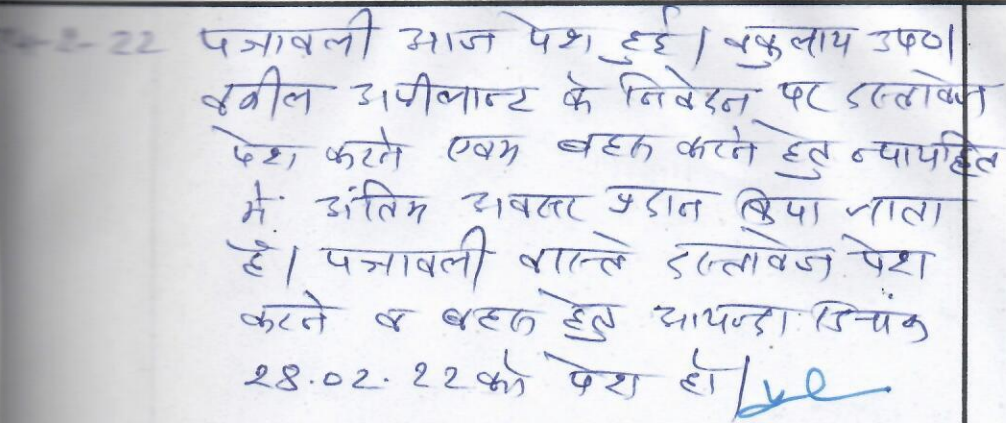 -2-22 पत्रावली आज पेश हुई। वकुलाय उप०।
वकील अपीलान्ट के निवेदन पर दस्तावेज
पेश करने एवम बहस करने हेतु न्यायहित
में अंतिम अवसर प्रदान किया जाता
है। पत्रावली वास्ते दस्तावेज पेश
करने व बहस हेतु आयन्दा दिनांक
28.02.22 को पेश हो।